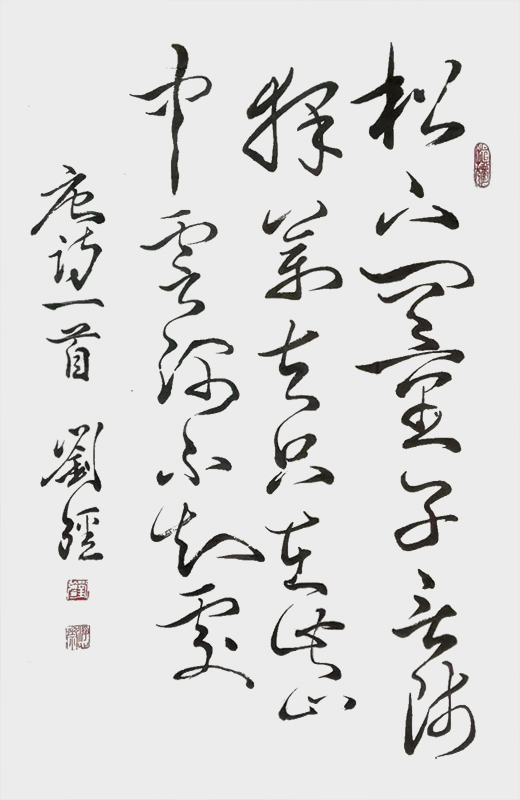 松下問童子言師
採藥去只在此山
中雲深不知處
唐詩一首 劉經